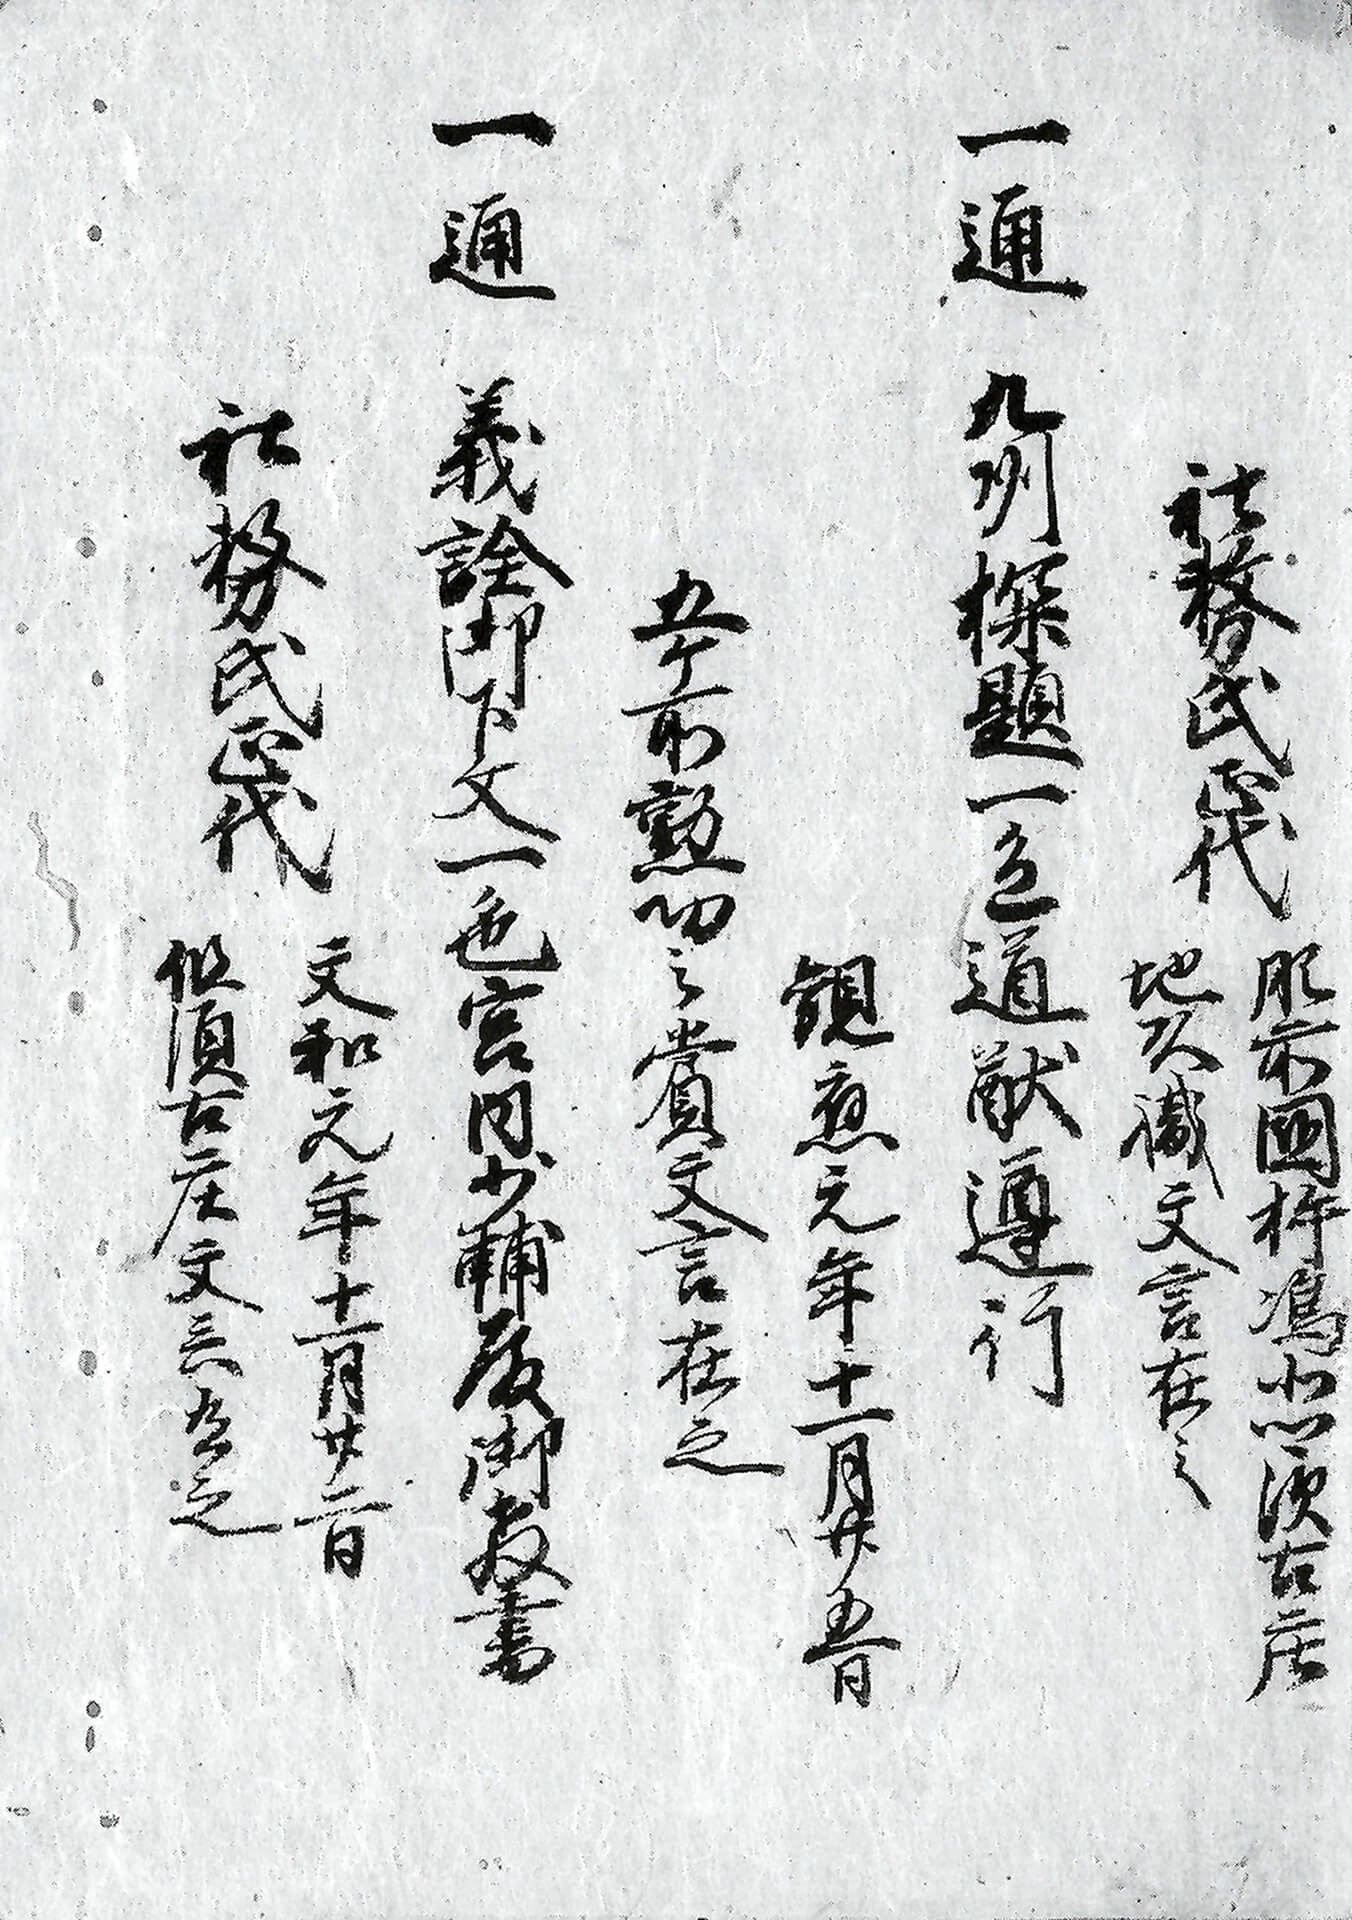 社務氏正代
肥前國杵嶋北郷須古庄
地頭職文言在之
一通　九州探題一色道猷遵行
観應元年十一月廿五日
五ケ所勲功之賞文言在之
一通　義詮御下文一色宮内少輔殿御教書
社務氏正代
文和元年十一月廿二日
但須古庄文言在之